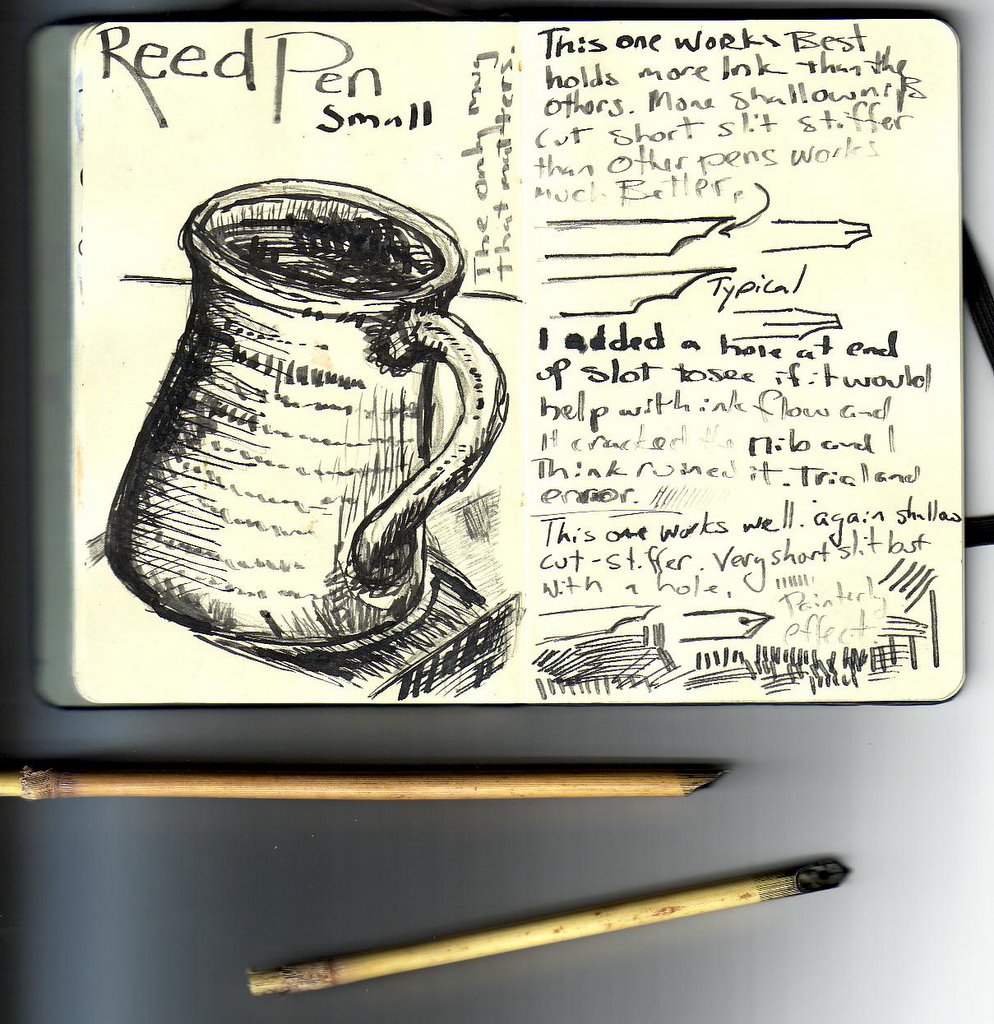 Reed Pen
Small
The only mug
that matters.
This one works Best
holds more Ink than the
others. More shallow nib
cut short slit stiffer
than other pens works
much Better.
Typical
I added a hole at end
of slot to see if it would
help with ink flow and
it cracked the Nib and I
Think ruined it. Trial and
error.
This one works well. again shallow
cut-stiffer. Very short slit but
with a hole.
Painterly
effect.